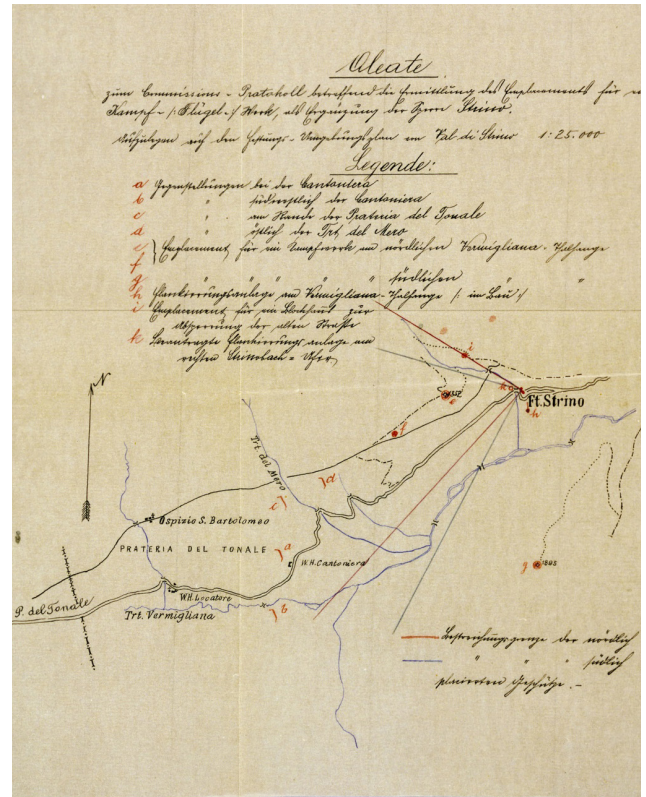 Oleate
zum Commissions-Protokoll betreffend die Ermittlung des Emplacements für
Kampf- /: Flügel :/ Werk, als Ergänzung der Sperre Strino.
Aufzulegen auf den Festungs-Umgebungsplan von Val di Strino 1:25.000
Legende:
a Gegenstellungen bei der Cantoniera
b " südwestlich der Cantoniera
c " am Rande der Prateria del Tonale
d " östlich der Trt. del Mero
e } Emplacement für ein Kampfwerk am nördlichen Vermigliana-Thalhange
f
g " " " " südlichen " "
h Flankierungsanlage am Vermigliana-Thalhange /: im Bau :/
i Emplacement für ein Blockhaus zur
Absperrung der alten Straße
k Beantragte Flankierungsanlage am
rechten Strinobach-Ufer
i
N
k
Ft. Strino
h
e
f
Trt. del Mero
d
c
Ospizio S. Bartolomeo
PRATERIA DEL TONALE
a
W.H. Cantoniera
g
W.H. Locatore
P. del Tonale
b
Trt. Vermigliana
Bestreichungsgrenze der nördlich
" " südlich
placierten Geschütze.-